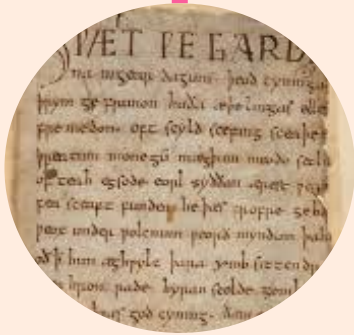 HǷÆT ǷE GARD
na ingear dagum. þeod cyninga
þrym ge frunon huða æþelingas elle
fre medon. oft scyld scefing sceaþe
þreatum monegū mægþum meodo setla
ofteah egsode eorl syððan ærest ƿear
fea sceaft funden he þæs frofre geba
ƿeox under ƿolcnum ƿeorð myndum þah
oð þ him æghƿylc þara ymb sittendra
hron rade hyran scolde gomb
ƿæs god cyning.